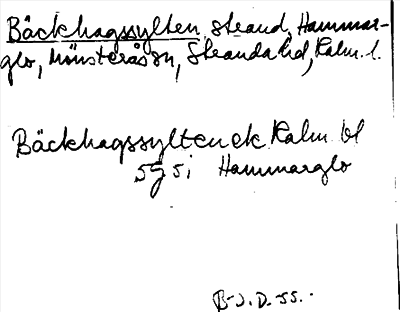 Bäckhagssylten, strand, Hammar-
glo, Mönsterås sn, Stranda hd, Kalm. l.
Bäckhagssylten ek Kalm bl
5g 5i Hammarglo
B-J.D.-55.-